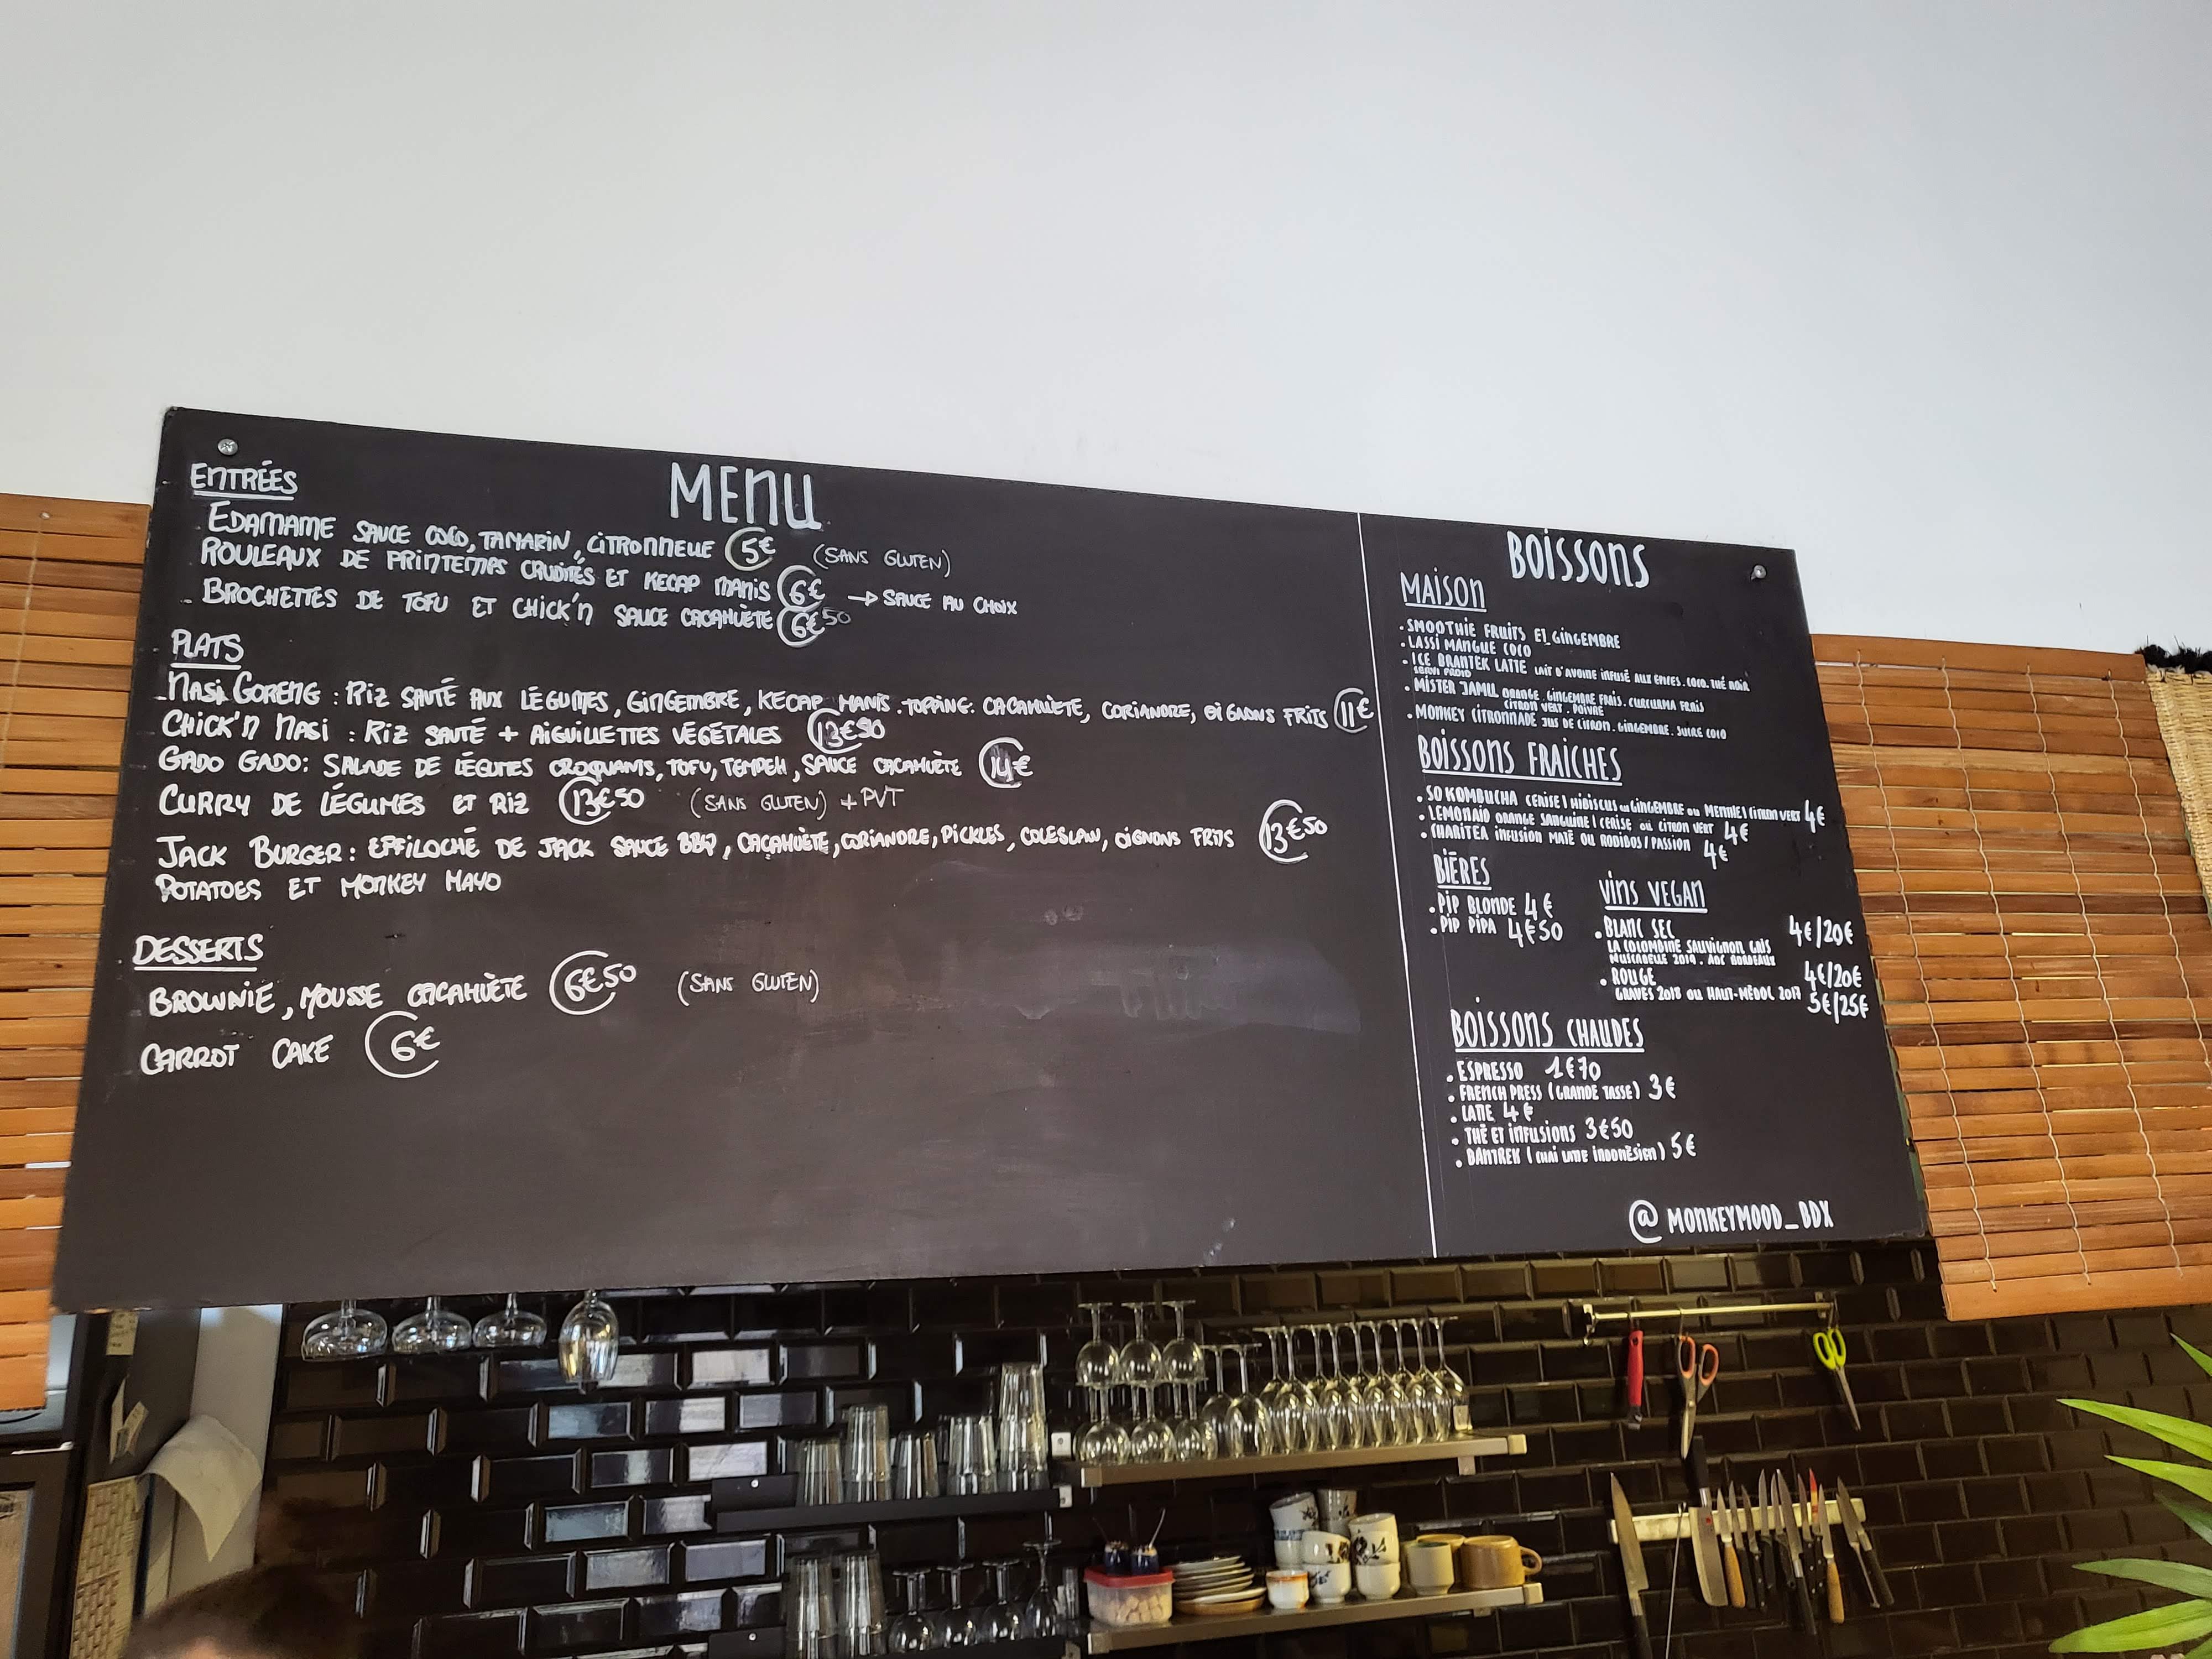 MENU
ENTRÉES
EDAMAME SAUCE COCO, TAMARIN, CITRONNELLE 5€ (SANS GLUTEN)
ROULEAUX DE PRINTEMPS CRUDITÉS ET KECAP MANIS 6€ → SAUCE AU CHOIX
- BROCHETTES DE TOFU ET CHICK'N SAUCE CACAHUÈTE 6€50
PLATS
- NASI GORENG : RIZ SAUTÉ AUX LÉGUMES, GINGEMBRE, KECAP MANIS. TOPPING: CACAHUÈTE, CORIANDRE, OIGNONS FRITS 11€
CHICK'N NASI : RIZ SAUTÉ + AIGUILLETTES VÉGÉTALES 13€50
GADO GADO: SALADE DE LÉGUMES CROQUANTS, TOFU, TEMPEH, SAUCE CACAHUÈTE 14€
CURRY DE LÉGUMES ET RIZ 13€50 (SANS GLUTEN) + PVT
JACK BURGER: EFFILOCHÉ DE JACK SAUCE BBQ, CACAHUÈTE, CORIANDRE, PICKLES, COLESLAW, OIGNONS FRITS 13€50
POTATOES ET MONKEY MAYO
DESSERTS
BROWNIE, MOUSSE CACAHUÈTE 6€50 (SANS GLUTEN)
CARROT CAKE 6€
BOISSONS
MAISON
• SMOOTHIE FRUITS ET GINGEMBRE
• LASSI MANGUE COCO
• ICE BANTEK LATTE LAIT D'AVOINE INFUSÉ AUX ÉPICES. COCO. THÉ NOIR
SERVI FROID
• MISTER JAMU ORANGE. GINGEMBRE FRAIS. CURCUMA FRAIS
CITRON VERT. POIVRE
• MONKEY CITRONNADE JUS DE CITRON. GINGEMBRE. SUCRE COCO
BOISSONS FRAICHES
• SO KOMBUCHA CERISE | HIBISCUS ou GINGEMBRE ou MENTHE | CITRON VERT 4€
• LEMONAID ORANGE SANGUINE | CERISE OU CITRON VERT 4€
• CHARITEA INFUSION MATÉ OU ROOIBOS / PASSION 4€
BIÈRES
• PIP BLONDE 4€
• PIP PIPA 4€50
VINS VEGAN
• BLANC SEC 4€/20€
LA COLOMBINE SAUVIGNON GRIS
MUSCADELLE 2019. AOC BORDEAUX
• ROUGE 4€/20€
GRAVES 2018 OU HAUT-MÉDOC 2017 5€/25€
BOISSONS CHAUDES
• ESPRESSO 1€70
• FRENCH PRESS (GRANDE TASSE) 3€
• LATTE 4€
• THÉ ET INFUSIONS 3€50
• BANTREK (CHAÏ LATTE INDONÉSIEN) 5€
@MONKEYMOOD_BDX